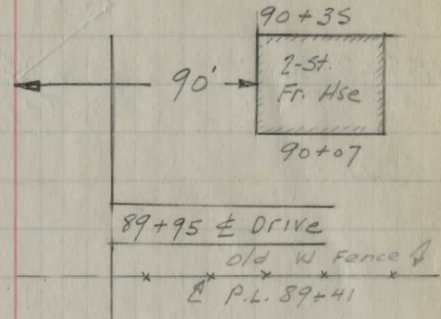 90+35
90'
2-St.
Fr. Hse
90+07
89+95 ℄ Drive
Old W Fence &
℄ P.L. 89+41